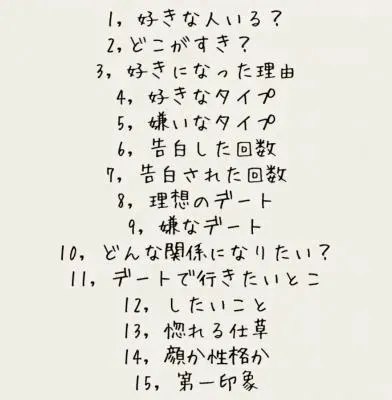 1, 好きな人いる?
2, どこがすき?
3, 好きになった理由
4, 好きなタイプ
5, 嫌いなタイプ
6, 告白した回数
7, 告白された回数
8, 理想のデート
9, 嫌なデート
10, どんな関係になりたい?
11, デートで行きたいとこ
12, したいこと
13, 惚れる仕草
14, 顔か性格か
15, 第一印象